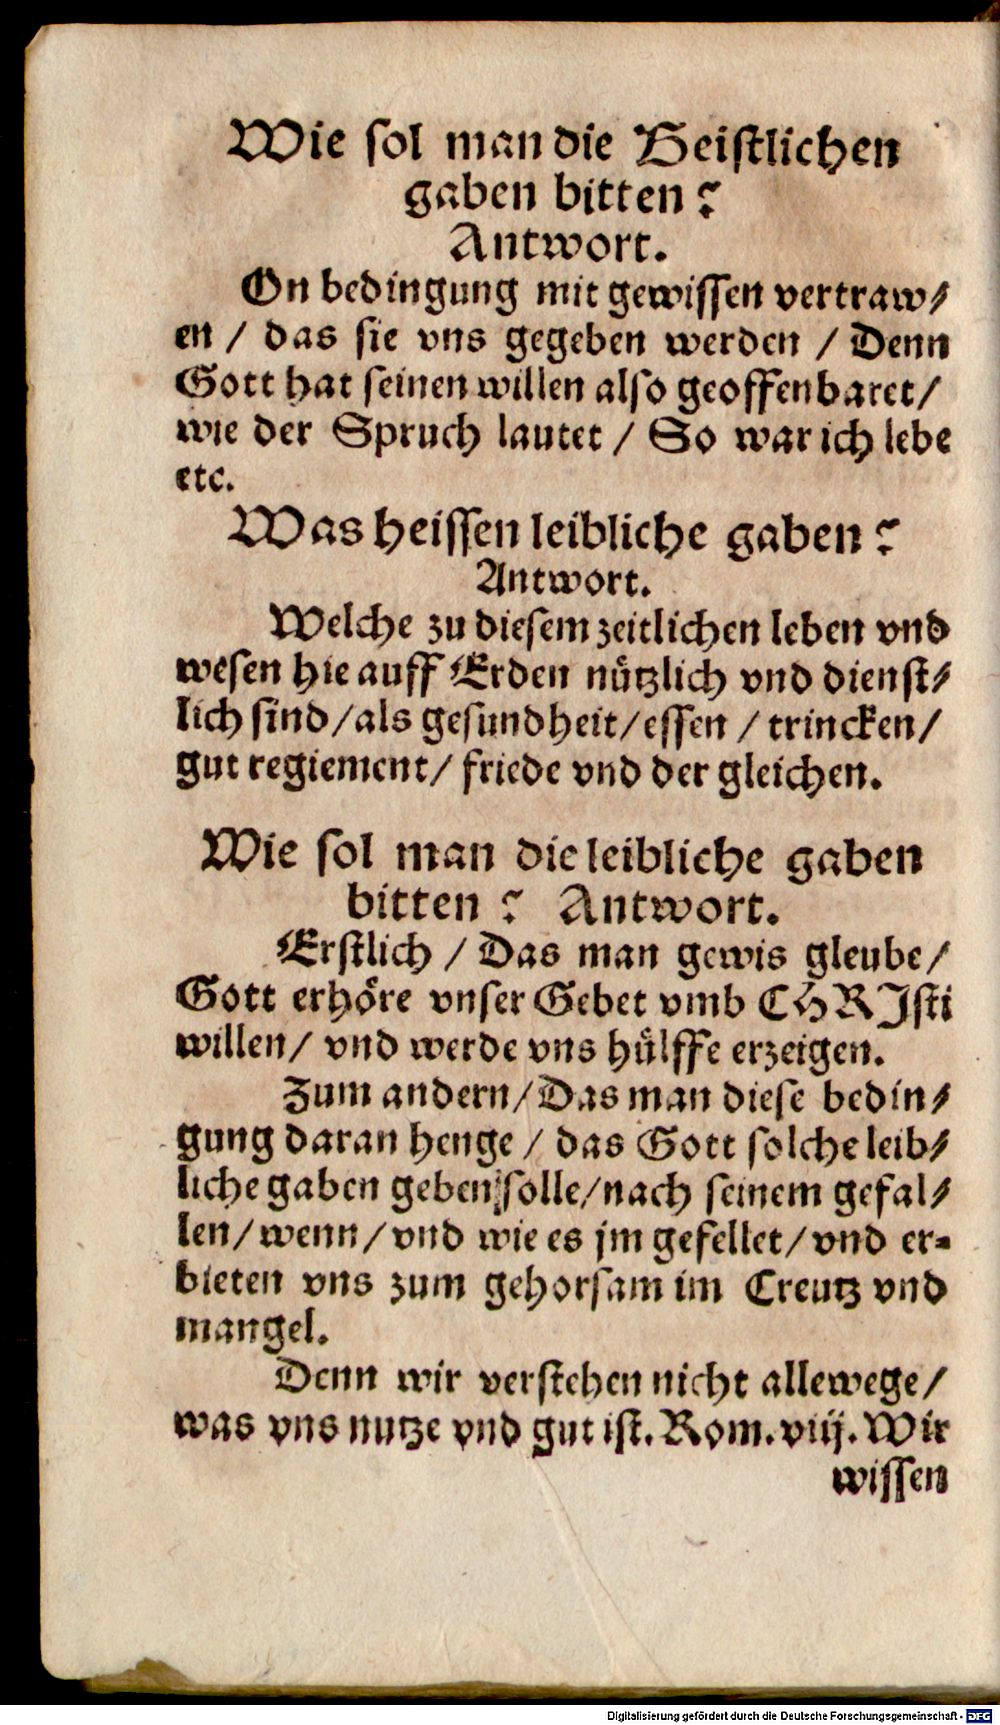 Wie sol man die Geistlichen
gaben bitten?
Antwort.
On bedingung mit gewissen vertraw⸗
en / das sie vns gegeben werden / Denn
Gott hat seinen willen also geoffenbaret /
wie der Spruch lautet / So war ich lebe
etc.
Was heissen leibliche gaben?
Antwort.
Welche zu diesem zeitlichen leben vnd
wesen hie auff Erden nützlich vnd dienst⸗
lich sind / als gesundheit / essen / trincken /
gut regiement / friede vnd der gleichen.
Wie sol man die leibliche gaben
bitten? Antwort.
Erstlich / Das man gewis gleube /
Gott erhöre vnser Gebet vmb CHRJsti
willen / vnd werde vns hülffe erzeigen.
Zum andern / Das man diese bedin⸗
gung daran henge / das Gott solche leib⸗
liche gaben geben solle / nach seinem gefal⸗
len / wenn / vnd wie es jm gefellet / vnd er⸗
bieten vns zum gehorsam im Creutz vnd
mangel.
Denn wir verstehen nicht allewege /
was vns nutze vnd gut ist. Rom. viij. Wir
wissen
Digitalisierung gefördert durch die Deutsche Forschungsgemeinschaft - DFG